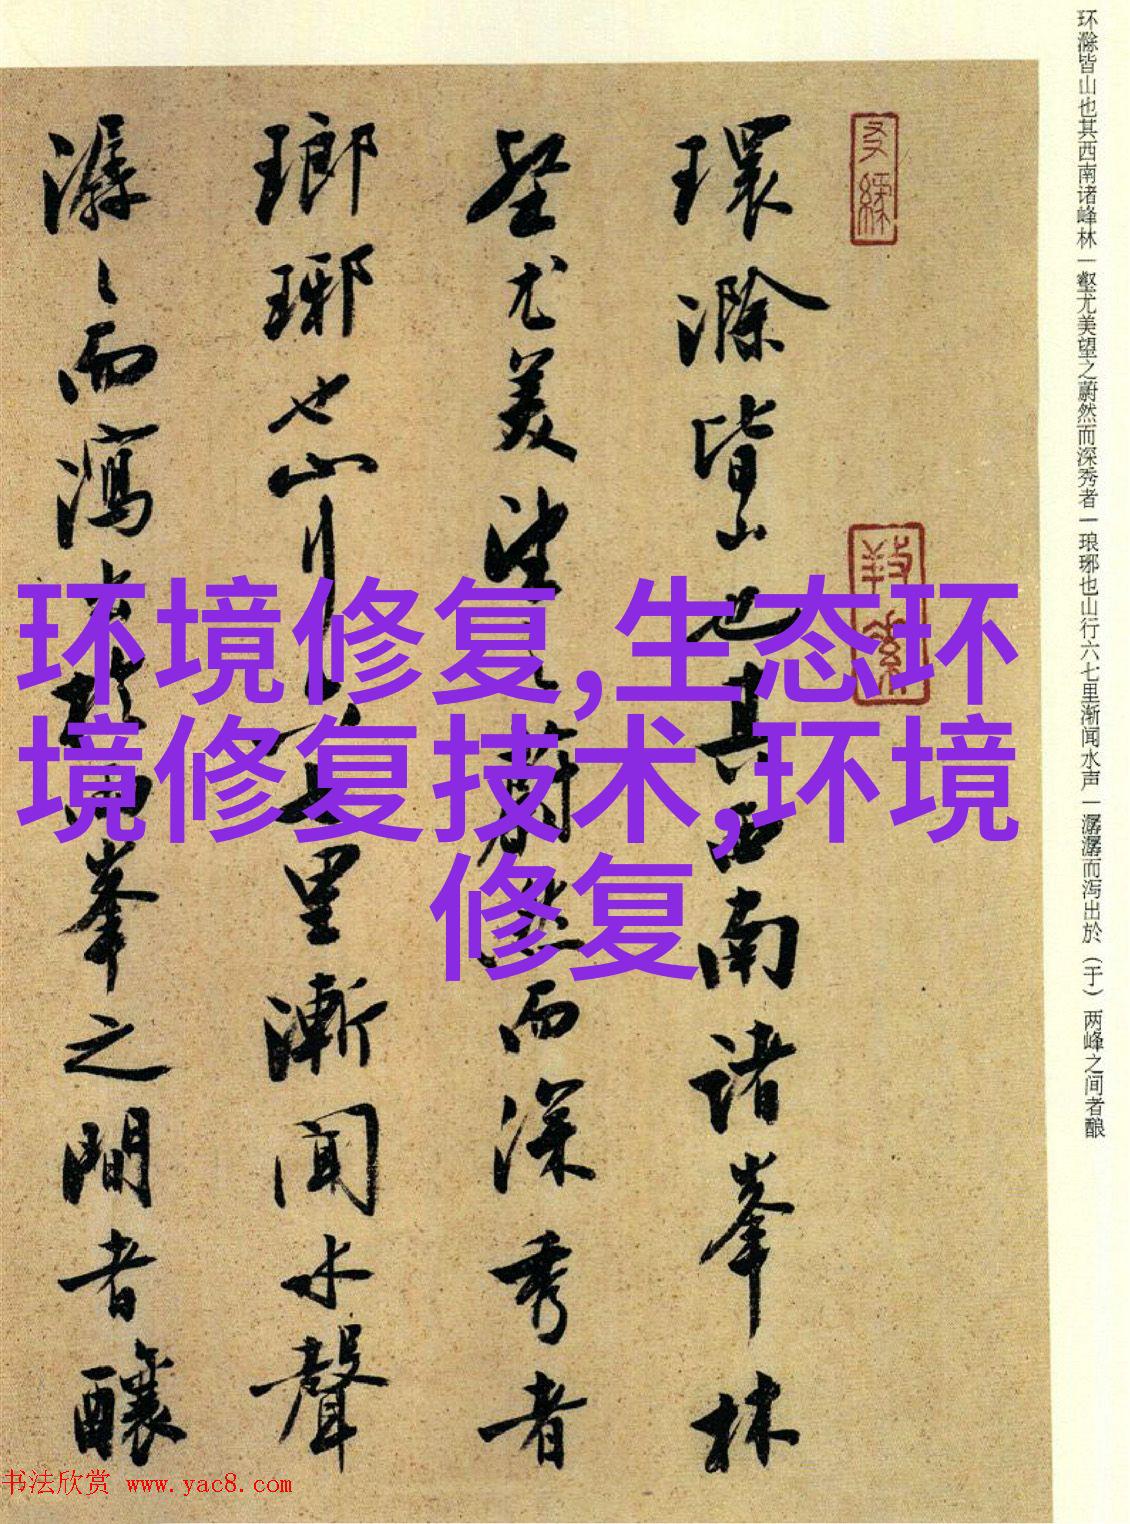 环滁皆山也其西南诸峰林一壑尤美望之蔚然而深秀者一琅琊也山行六七里渐闻水声一潺潺而泻出於（于）两峰之间者酿
環滁皆山也其西南諸峯林
壑尤美望之蔚然而深秀者
瑯琊也山行六七里漸聞水聲
潺〻而瀉出於兩峯之間者釀
环境修复,生态环
境修复技术,环境
修复
书法欣赏 www.yac8.com